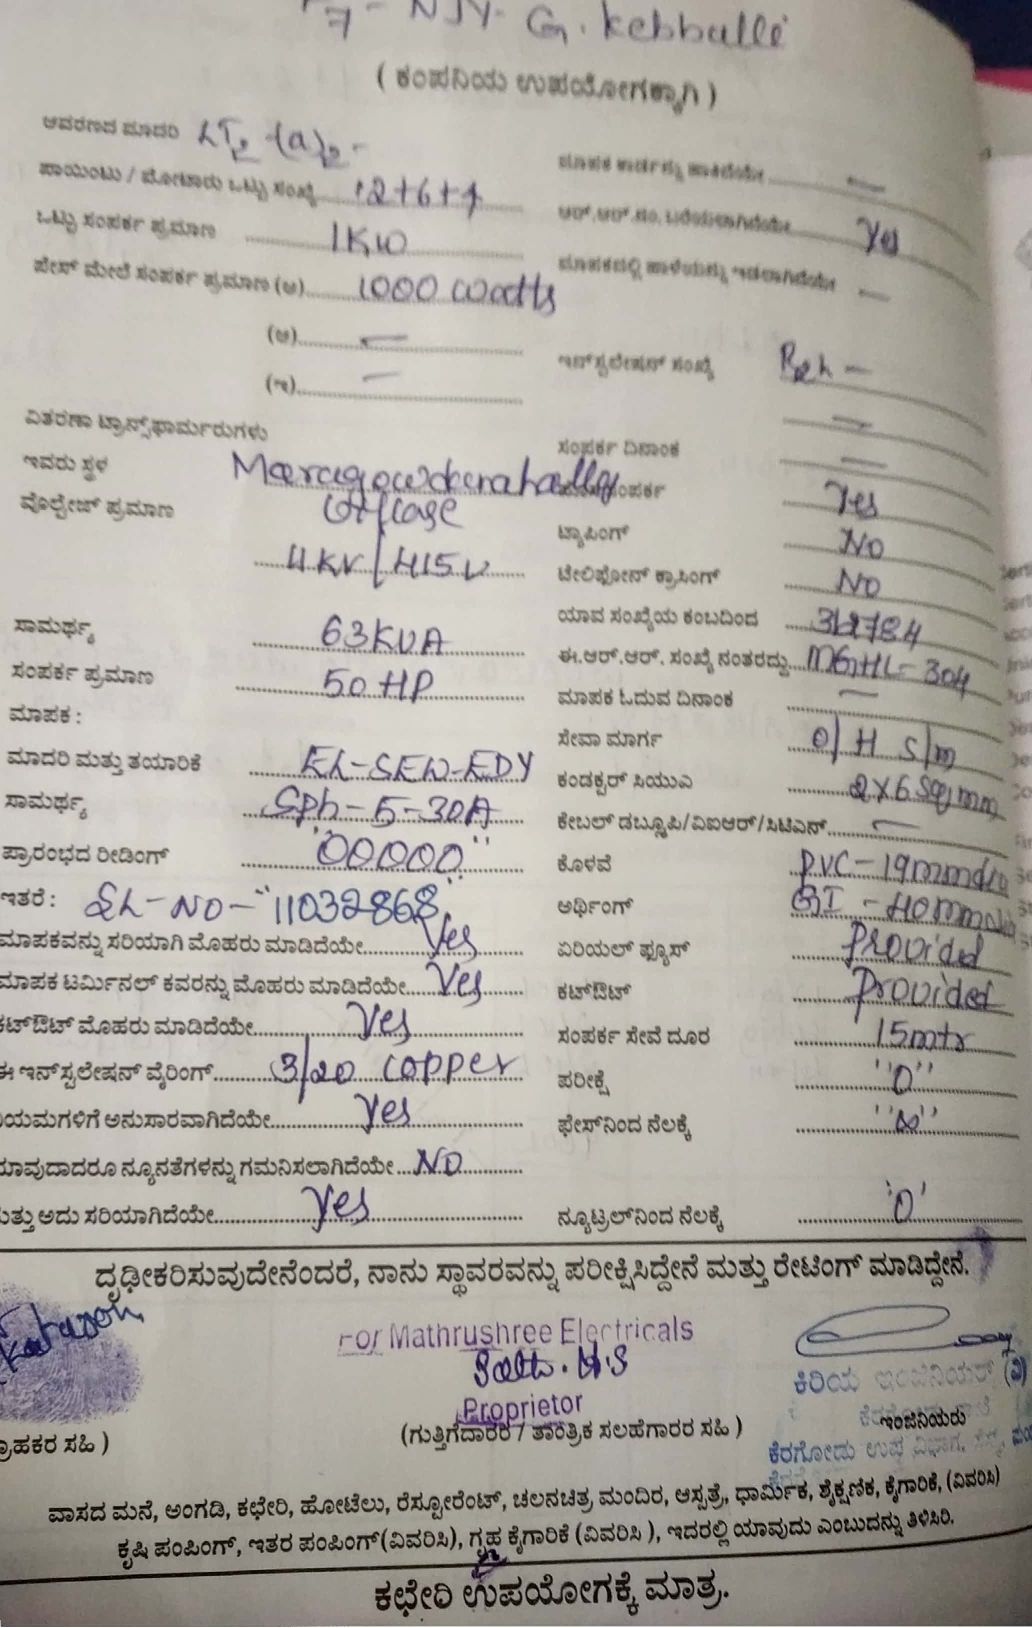 F7 - NJY - G. Kebballi
( ಕಂಪನಿಯ ಉಪಯೋಗಕ್ಕಾಗಿ )
ಆವರಣದ ಮಾದರಿ LT2-(a)2 -
ಪಾಯಿಂಟು / ಮೋಟಾರು ಒಟ್ಟು ಸಂಖ್ಯೆ 2+6+1
ಒಟ್ಟು ಸಂಪರ್ಕ ಪ್ರಮಾಣ 1KW
ಫೇಸ್ ಮೇಲೆ ಸಂಪರ್ಕ ಪ್ರಮಾಣ (ಅ) 1000 watts
(ಆ) —
(ಇ) —
ವಿತರಣಾ ಟ್ರಾನ್ಸ್‌ಫಾರ್ಮರುಗಳು
ಇವರು ಸ್ಥಳ
ವೊಲ್ಟೇಜ್ ಪ್ರಮಾಣ
11KV / 415V
ಸಾಮರ್ಥ್ಯ 63KVA
ಸಂಪರ್ಕ ಪ್ರಮಾಣ 50 HP
ಮಾಪಕ :
ಮಾದರಿ ಮತ್ತು ತಯಾರಿಕೆ EL-SEW-EDY
ಸಾಮರ್ಥ್ಯ Sph-5-30A
ಪ್ರಾರಂಭದ ರೀಡಿಂಗ್ "00000"
ಇತರೆ : SL-NO-"11032868"
ಮಾಪಕವನ್ನು ಸರಿಯಾಗಿ ಮೊಹರು ಮಾಡಿದೆಯೇ Yes
ಮಾಪಕ ಟರ್ಮಿನಲ್ ಕವರನ್ನು ಮೊಹರು ಮಾಡಿದೆಯೇ Yes
ಕಟ್‌ಔಟ್ ಮೊಹರು ಮಾಡಿದೆಯೇ Yes
ಈ ಇನ್‌ಸ್ಟಲೇಷನ್ ವೈರಿಂಗ್ 3/20 copper
ಯಮಗಳಿಗೆ ಅನುಸಾರವಾಗಿದೆಯೇ Yes
ಯಾವುದಾದರೂ ನ್ಯೂನತೆಗಳನ್ನು ಗಮನಿಸಲಾಗಿದೆಯೇ NO
ಮತ್ತು ಅದು ಸರಿಯಾಗಿದೆಯೇ Yes
—
ಆರ್.ಆರ್.ನಂ. Yes
—
ಇನ್‌ಸ್ಟಲೇಷನ್ ಸಂಖ್ಯೆ
ಸಂಪರ್ಕ ದಿನಾಂಕ —
ಸಂಪರ್ಕ Yes
ಟ್ಯಾಪಿಂಗ್ NO
ಟೇಲಿಫೋನ್ ಕ್ರಾಸಿಂಗ್ NO
ಯಾವ ಸಂಖ್ಯೆಯ ಕಂಬದಿಂದ
ಈ.ಆರ್.ಆರ್. ಸಂಖ್ಯೆ ನಂತರದ್ದು MGHL-304
ಮಾಪಕ ಓದುವ ದಿನಾಂಕ —
ಸೇವಾ ಮಾರ್ಗ O/H S/m
ಕಂಡಕ್ಟರ್ ಸಿಯುಎ 2x6 sqmm
ಕೇಬಲ್ ಡಬ್ಲ್ಯೂಪಿ/ವಿಐಆರ್/ಸಿಟಿಎನ್ —
ಕೊಳವೆ PVC-19mmdia
ಅರ್ಥಿಂಗ್ GI - 40mmdia
ಏರಿಯಲ್ ಫ್ಯೂಸ್ Provided
ಕಟ್‌ಔಟ್ Provided
ಸಂಪರ್ಕ ಸೇವೆ ದೂರ 15mtr
ಪರೀಕ್ಷೆ "0"
ಫೇಸ್‌ನಿಂದ ನೆಲಕ್ಕೆ "∞"
ನ್ಯೂಟ್ರಲ್‌ನಿಂದ ನೆಲಕ್ಕೆ '0'
ದೃಢೀಕರಿಸುವುದೇನೆಂದರೆ, ನಾನು ಸ್ಥಾವರವನ್ನು ಪರೀಕ್ಷಿಸಿದ್ದೇನೆ ಮತ್ತು ರೇಟಿಂಗ್ ಮಾಡಿದ್ದೇನೆ.
For Mathrushree Electricals
Proprietor
ಕಿರಿಯ ಇಂಜಿನಿಯರ್ (ವಿ)
ಗ್ರಾಹಕರ ಸಹಿ )
(ಗುತ್ತಿಗೆದಾರರ / ತಾಂತ್ರಿಕ ಸಲಹೆಗಾರರ ಸಹಿ )
ಇಂಜಿನಿಯರು
ಕೆರಗೋಡು ಉಪ ವಿಭಾಗ,
ವಾಸದ ಮನೆ, ಅಂಗಡಿ, ಕಛೇರಿ, ಹೋಟೆಲು, ರೆಸ್ಟೋರೆಂಟ್, ಚಲನಚಿತ್ರ ಮಂದಿರ, ಆಸ್ಪತ್ರೆ, ಧಾರ್ಮಿಕ, ಶೈಕ್ಷಣಿಕ, ಕೈಗಾರಿಕೆ, (ವಿವರಿಸಿ)
ಕೃಷಿ ಪಂಪಿಂಗ್, ಇತರ ಪಂಪಿಂಗ್(ವಿವರಿಸಿ), ಗೃಹ ಕೈಗಾರಿಕೆ (ವಿವರಿಸಿ ), ಇದರಲ್ಲಿ ಯಾವುದು ಎಂಬುದನ್ನು ತಿಳಿಸಿರಿ.
ಕಛೇರಿ ಉಪಯೋಗಕ್ಕೆ ಮಾತ್ರ.